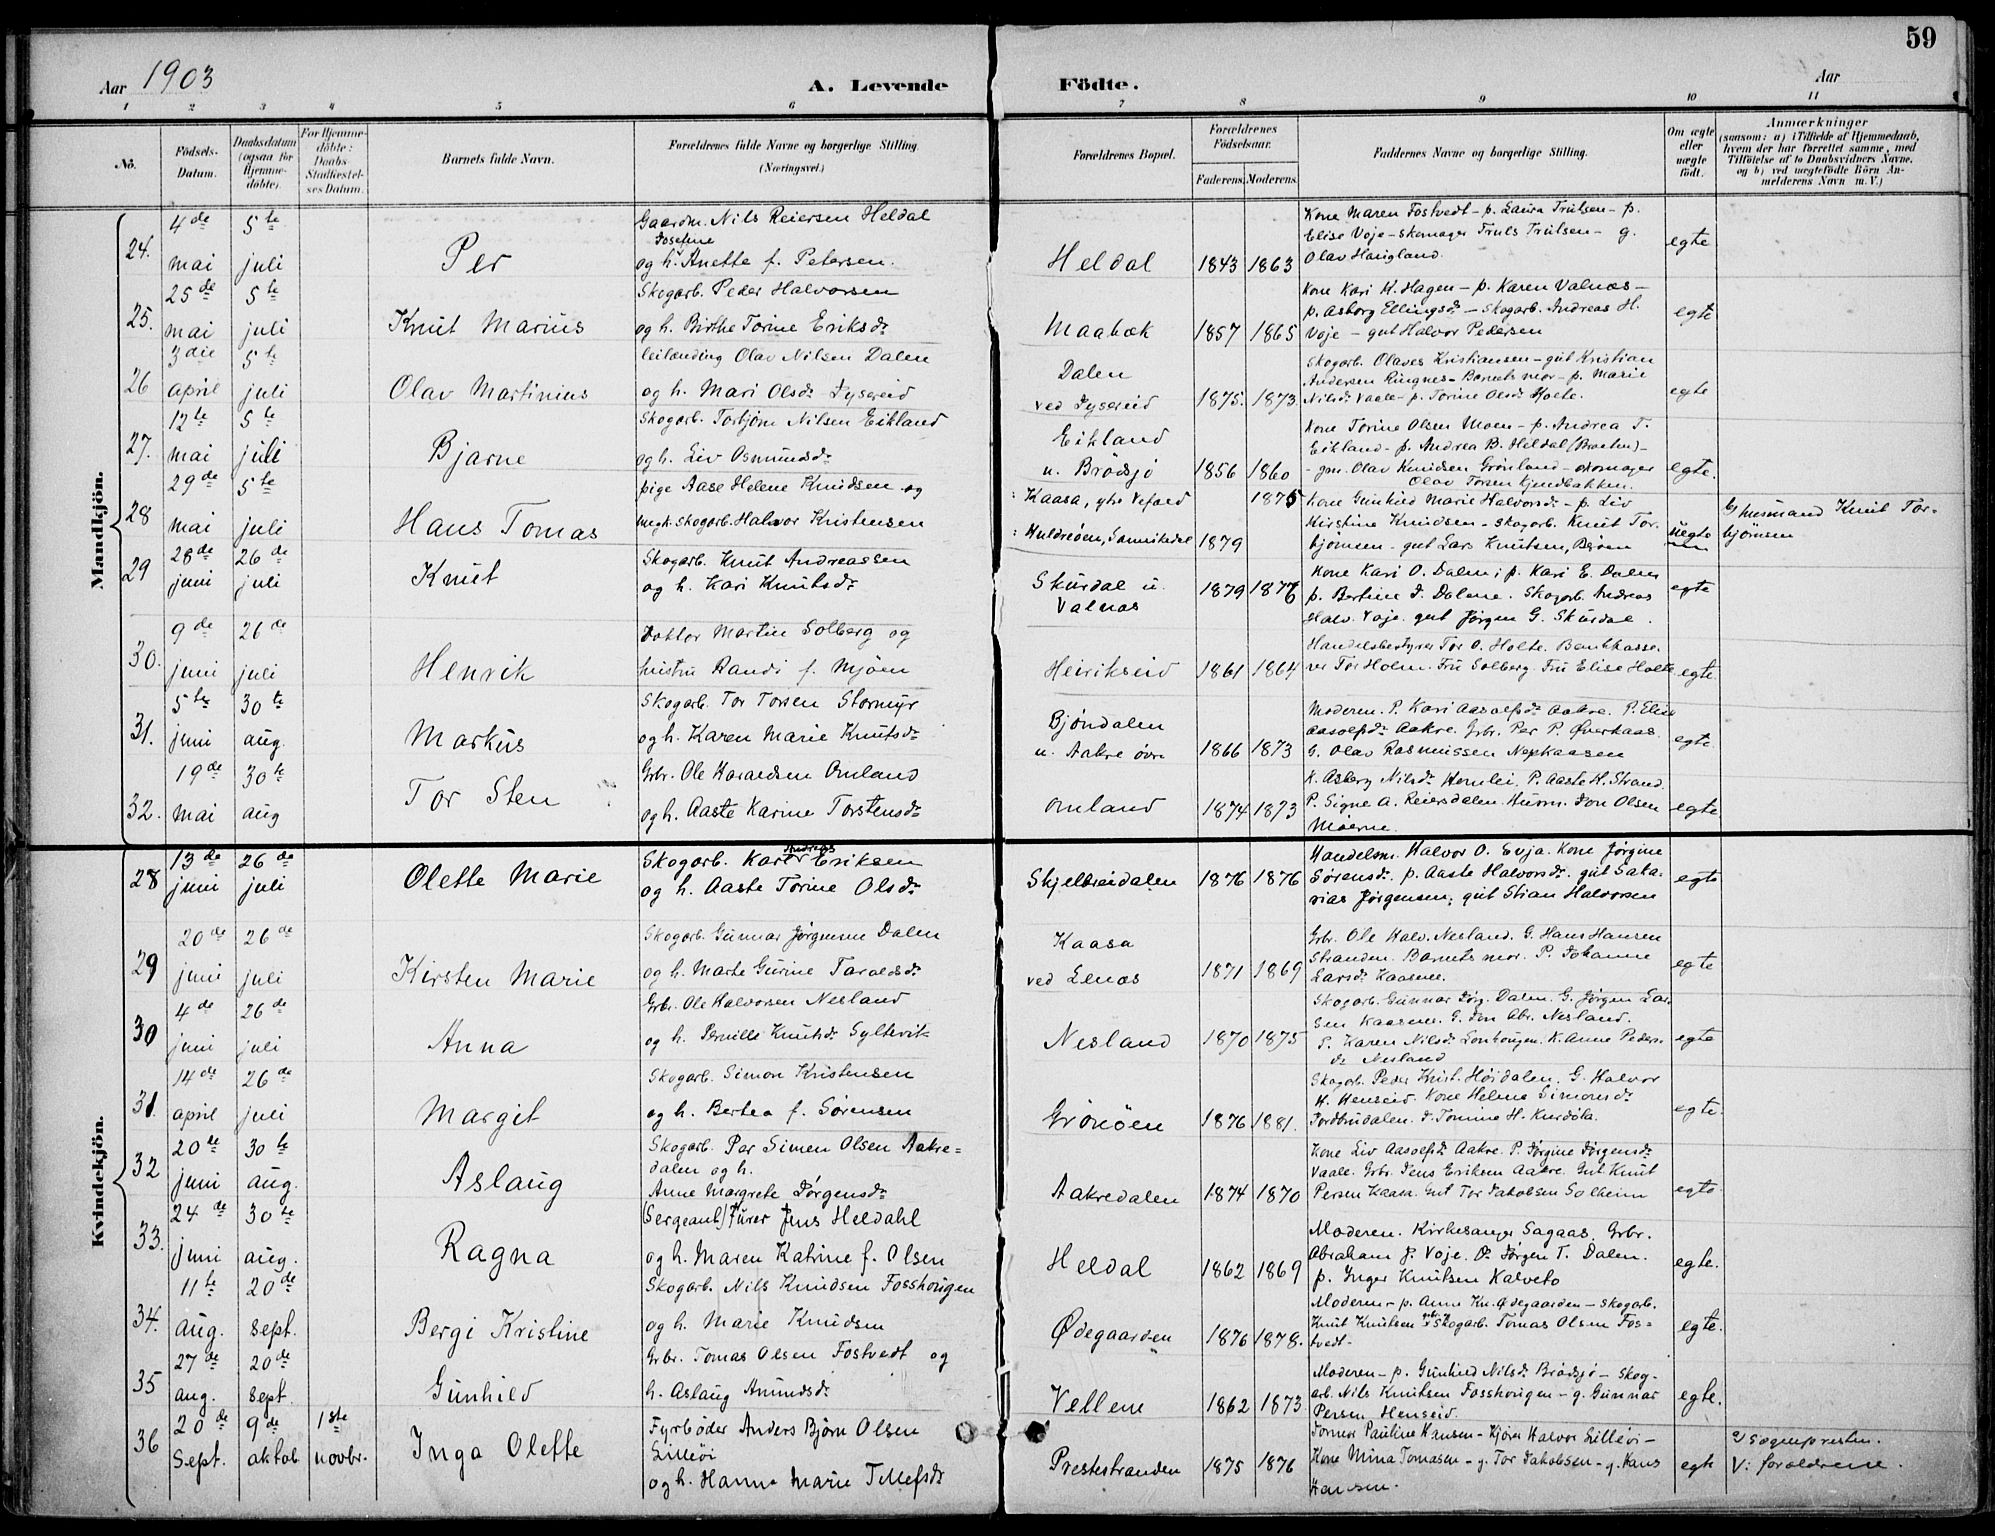 59
Aar 1903
A. Levende Födte.
Aar
1 2 3 4 5 6 7 8 9 10 11
Nô.
Födsels-Datum.
Daabsdatum (ogsaa for Hjemme-döbte).
For Hjemme-döbte: Daabs-Stadfæstel-ses Datum.
Barnets fulde Navn.
Forældrenes fulde Navne og borgerlige Stilling. (Næringsvei.)
Forældrenes Bopæl.
Forældrenes Födselsaar.
Faderens. Moderens.
Faddernes Navne og borgerlige Stilling.
Om ægte eller uægte födt.
Anmærkninger
(saasom: a) i Tilfælde af Hjemmedaab, hvem der har forrettet samme, med Tilföielse af to Daabsvidners Navne, og b) ved uægtefödte Börn An-melderens Navn m. V.)
Mandkjön.
24. 4de mai 5te juli
Per
Gaardm. Nils Reiersen Heldal
og h. Josefine Anette f. Petersen.
Heldal 1843 1863
Kone Maren Fostvedt - p. Laura Trulsen - p.
Elise Voje - skomager Truls Trulsen - g.
Olav Haugland.
egte
25. 25de mai 5te juli
Knut Marius
Skogarb. Peder Halvorsen
og h. Birthe Torine Eriksdr
Maabæk 1857 1865
Kone Kari H. Hagen - p. Karen Valnæs -
p. Asborg Ellingsdr - Skogarb. Andreas H.
Voje - gut Halvor Pedersen
egte
26 3die april 5te juli
Olav Martinius
leilænding Olav Nilsen Dalen
og h. Mari Olsdr Dysereid
Dalen
ved Dysereid 1875. 1873
Skogarb. Olaves Kristiansen - gut Kristian
Andersen Ringnes - Barnets mor - p. Marie
Nilsdr Vaale - p. Torine Olsdr Holte.
egte
27. 12te mai 5te juli
Bjarne
Skogarb. Torbjørn Nilsen Eikland
og h. Liv Osmundsdr
Eikland
u. Brødsjø 1856 1860
Kone Torine Olsen Moen - p. Andrea T.
Eikland - p. Andrea B. Heldal (Braaten) -
- gm. Olav Knudsen Grønland - skomager
Olav Torsen Kjendbakken.
egte.
28 29de mai 5te juli
Hans Tomas
pige Aase Helene Knudsen og
ungk. skogarb. Halvor Kristensen
Kaasa, ytre Vefald 1875
Huldreöen, Sannikedal 1879
Kone Gunhild Marie Halvorsdr - p. Liv
Kirstine Knudsen - skogarb. Knut Tor-
bjørnsen - gut Lars Knutsen,
uegte
husmand Knut Tor-
bjørnsen
29 28de juni 26de juli
Knut
Skogarb. Knut Andreassen
og h. Kari Knutsdr
Skurdal u.
Valnæs 1879 1876
Kone Kari O. Dalen; p. Kari E. Dalen
p. Bertine J. Dalene. Skogarb. Andreas
Halv. Voje. gut Jørgen G. Skurdal.
egte
30. 9de juni 26de juli
Henrik
Doktor Martin Solberg og
hustru Randi f. Mjøen
Heirikseid 1861 1864
Handelsbestyrer Tor O. Holte. Bankkasse-
rer Tor Holm. Fru Solberg. Fru Elise Holte
egte
31. 5te juni 30te aug.
Markus
Skogarb. Tor Torsen Stormyr
og h. Karen Marie Knutsdr
Bjøndalen
u. Aakre øvre 1866 1873
Moderen. P. Kari Aasolfsdr Aakre. P. Elise
Aasolfsdr Aakre. Grbr. Per P. Øverkaas.
G. Olav Rasmussen Nepkaasen
egte.
32. 19de mai 30te aug
Tor Sten
Grbr. Ole Haraldsen Omland
og h. Aaste Karine Torstensdr
Omland 1874 1873
K. Asberg Nilsdr Homlei. P. Aaste H. Strand.
P. Signe A. Reiersdalen. Husm. Jon Olsen
Moerne.
egte
Kvindekjön.
28 13de juni 26de juli
Olette Marie
Skogarb. Karl Andreas Eriksen
og h. Aaste Torine Olsdr
Skjelbreidalen 1876 1876
Handelsm. Halvor O. Evja. Kone Jørgine
Sørensdr. p. Aaste Halvorsdr. gut Saka-
rias Jørgensen; gut Stian Halvorsen
egte
29 20de juni 26de juli
Kirsten Marie
Skogarb. Gunnar Jørgensen Dalen
og h. Marte Gurine Taraldsdr
Kaasa
ved Lenæs 1871 1869
Grbr. Ole Halv. Nesland. G. Hans Hansen
Stranden. Barnets mor. P. Johanne
Larsdr Kaasene.
egte
30 4de juni 26de juli
Anna
Grbr. Ole Halvorsen Nesland
og h. Pernille Knutsdr Syltevik
Nesland 1870 1875
Skogarb. Gunnar Jørg. Dalen. G. Jørgen Lar-
sen Kaasene. G. Jon Abr. Nesland.
P. Karen Nilsdr Lonhougen. K. Anne Peders-
dr Nesland
egte
31. 14de april 26de juli
Margit
Skogarb. Simon Kristensen
og h. Bertea f. Sørensen
Grønöen 1876 1881.
Skogarb. Peder Krist. Høidalen. G. Halvor
H. Henseid. Kone Helene Simonsdr
Jordbrudalen. J. Tomine H. Kurdøla.
egte.
32 20de juni 30te aug.
Aslaug
Skogarb. Per Simen Olsen Aakre-
dalen og h.
Anne Margrete Jørgensdr
Aakredalen 1874 1870
Kone Liv Aasolfsdr Aakre. P. Jørgine Jørgensdr
Vaale. Grbr. Jens Eriksen Aakre. Gut Knut
Persen Kaasa. Gut Tor Jakobsen Solheim
egte.
33. 24de juni 30te aug.
Ragna
(Sergeant) Furer Jens Heldahl
og h. Maren Katrine f. Olsen
Heldal 1862 1869
Moderen. Kirkesanger Sagaas. Grbr.
Abraham J. Voje. Do Jørgen T. Dalen.
p. Inger Knutsen Kalveto
egte.
34. 11te aug. 20de sept.
Bergi Kristine
Skogarb. Nils Knudsen Fosshougen
og h. Marie Knudsen
Ødegaarden 1876 1878.
Moderen - p. Anne Kn. Ødegaarden - skogarb.
Knut Knutsen skogarb. Tomas Olsen Fos-
tvedt -
egte.
35 27de aug. 20de sept.
Gunhild
Grbr. Tomas Olsen Fostvedt og
h. Aslaug Amundsdr
Vellene 1862 1873
Moderen - p. Gunhild Nilsdr Brødsjø - skog-
arb. Nils Knutsen Fosshougen - g. Gunnar
Persen Henseid.
egte.
36 20de Sept. 9de oktob 1ste novbr.
Inga Olette
Fyrbøder Anders Bjørn Olsen
Lilleöi
og h. Hanna Marie Tellefsdr
Prestestranden 1875 1876
Pauline Hansen - Kjører Halvor Lilleöi -
Kone Mina Tomasen - g. Tor Jakobsen - g. Hans
Hansen.
egte
Sogneprestin.
V: forældrene.